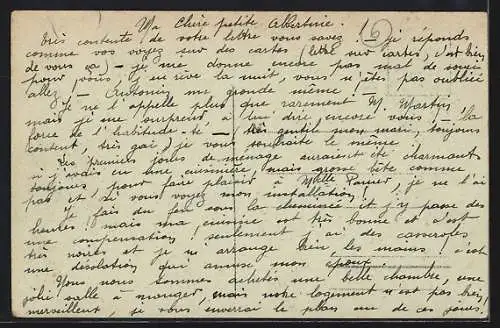 Ma Chère petite Albertine.
Très contente de votre lettre vous savez ! J'y réponds
comme vous voyez sur des cartes (lettre sur cartes, c'est bien
de vous ça) - je me donne encore pas mal de souci
pour vous, j'en rêve la nuit, vous n'êtes pas oubliée
allez ! - Antonin me gronde même ! -
Je ne l'appelle plus que rarement M. Martin,
mais je me surprend à lui dire encore vous ! - la
force de l'habitude - (très gentil mon mari, toujours
content, très gai, je vous souhaite le même.
Les premiers jours de ménage auraient été charmants
si j'avais eu une cuisinière, mais grosse bête comme
toujours, pour faire plaisir à Melle je ne l'ai
pas et si vous voyez mon installation !
Je fais du feu sous la cheminée et j'y passe des
heures ! mais ma cuisine est très bonne et c'est
une compensation ! seulement j'ai des casseroles
très noires et je m'arrange bien les mains ! c'est
une désolation qui amuse mon époux.
Nous nous sommes achetés une belle chambre, une
jolie salle à manger, mais notre logement n'est pas bien
merveilleux, je vous enverrai le plan un de ces jours.